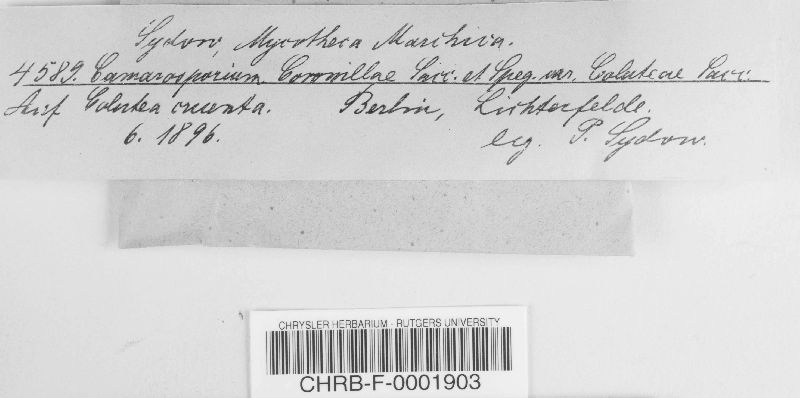 Sydow, Mycotheca Marchica.
4589. Camarosporium Coronillae Sacc. et Speg. var. Coluteae Sacc.
Auf Colutea cruenta. Berlin, Lichterfelde.
6. 1896. leg. P. Sydow.
CHRYSLER HERBARIUM - RUTGERS UNIVERSITY
CHRB-F-0001903